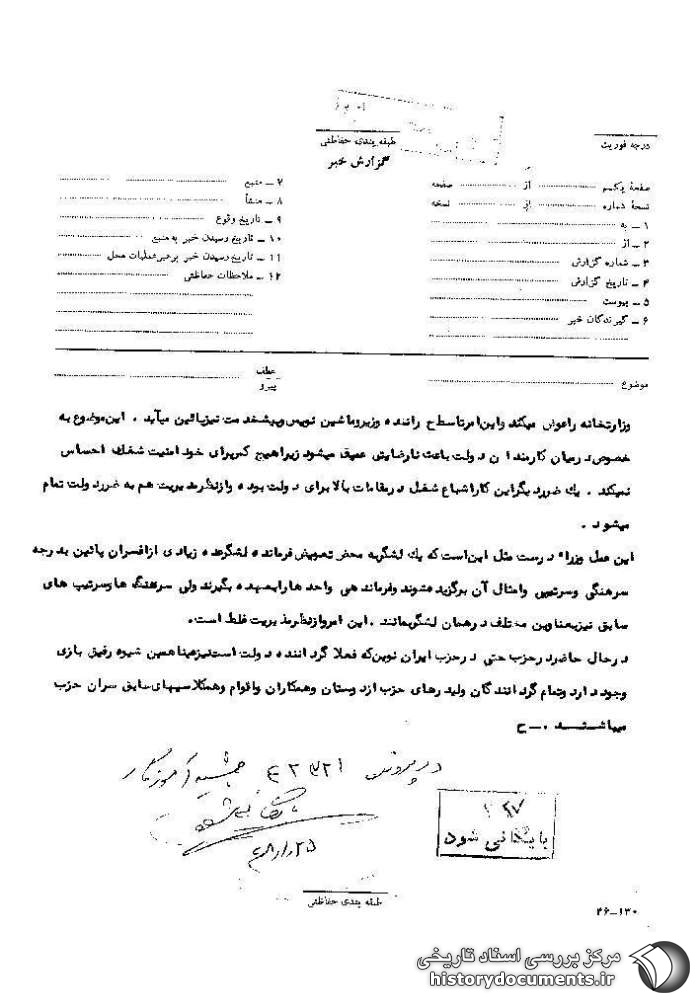 درجه فوریت
طبقه بندی حفاظتی
گزارش خبر
صفحهٔ یکم از صفحه
نسخهٔ شماره از نسخه
۱ ـ به
۲ ـ از
۳ ـ شماره گزارش
۴ ـ تاریخ گزارش
۵ ـ پیوست
۶ ـ گیرندگان خبر
۷ ـ منبع
۸ ـ منشأ
۹ ـ تاریخ وقوع
۱۰ ـ تاریخ رسیدن خبر به منبع
۱۱ ـ تاریخ رسیدن خبر به رهبر عملیات محل
۱۲ ـ ملاحظات حفاظتی
موضوع
عطف
پیرو
وزارتخانه را عوض میکند و این امر تا سطح راننده وزیر و ماشین نویس و پیشخدمت نیز پائین میآید . این موضوع به
خصوص در میان کارمندان دولت باعث نارضایتی عمیق میشود زیرا هیچ کس برای خود امنیت شغلی احساس
نمیکند . یک ضرر دیگر این کار اشباع شغل در مقامات بالا برای دولت بوده و از نظر مدیریت هم به ضرر دولت تمام
میشود .
این عمل وزراء درست مثل این است که یک لشگر به محض تعویض فرمانده لشگر عده زیادی از افسران پائین به درجه
سرهنگی و سرتیپی و امثال آن برگزیده شوند و فرماندهی واحدها را بعهده بگیرند ولی سرهنگ ها و سرتیپ های
سابق نیز بعناوین مختلف در همان لشگر بمانند . این امر از نظر مدیریت غلط است .
در حال حاضر در حزب حتی در حزب ایران نوین که فعلا گرداننده دولت است نیز عینا همین شیوه رفیق بازی
وجود دارد و تمام گردانندگان و لیدرهای حزب از دوستان و همکاران و اقوام و همکلاسیهای سابق سران حزب
میباشند . ـ ح
در پرونده ۴۲۳۲۱ جمشید آموزگار
بایگانی شود
۴۸/۱/۲۵
بایگانی شود
طبقه بندی حفاظتی
۲۶ـ۱۳۰
مرکز بررسی اسناد تاریخی
historydocuments.ir